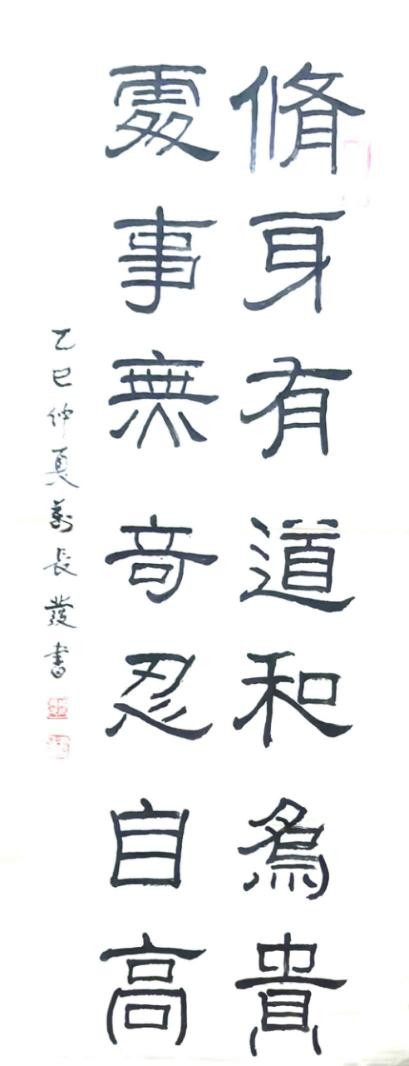 脩身有道和為貴
處事無奇忍自高
乙巳仲夏萬長發書